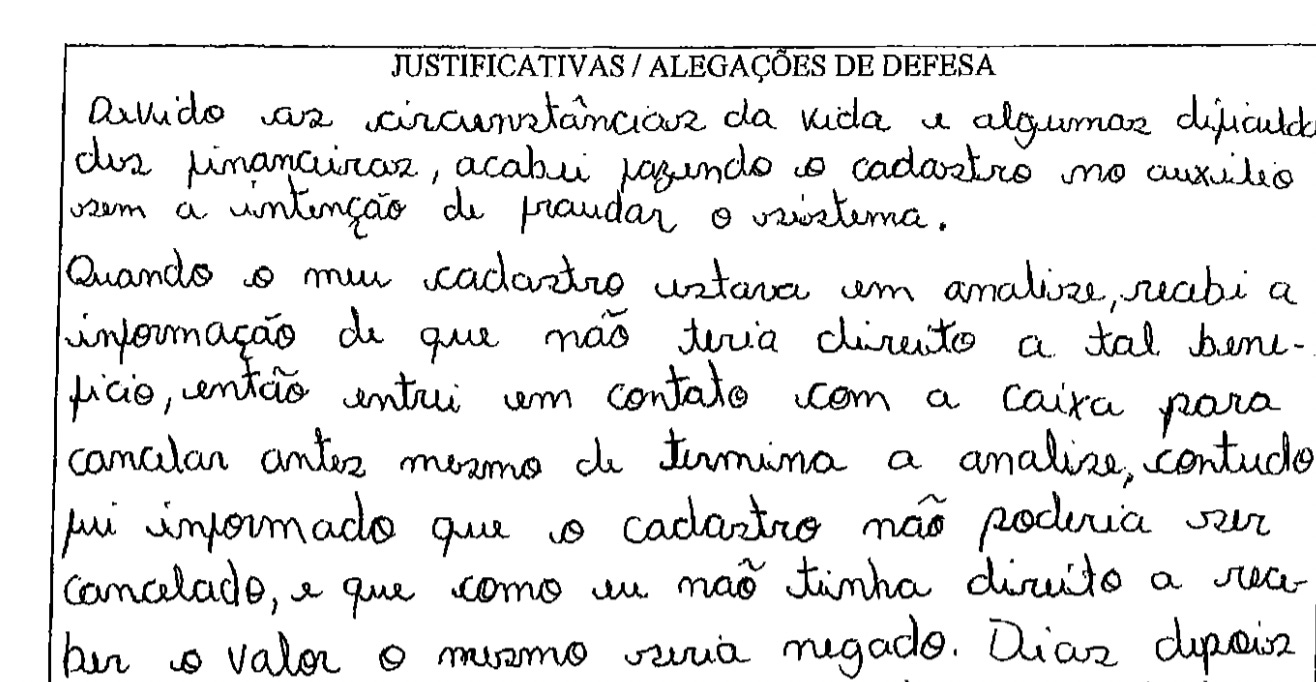 JUSTIFICATIVAS / ALEGAÇÕES DE DEFESA
Devido as circunstâncias da vida e algumas dificulda
des financeiras, acabei fazendo o cadastro no auxilio
sem a intenção de fraudar o sistema.
Quando o meu cadastro estava em analise, recebi a
informação de que não teria direito a tal bene-
ficio, então entrei em contato com a caixa para
cancelar antes mesmo de termina a analise, contudo
fui informado que o cadastro não poderia ser
cancelado, e que como eu não tinha direito a rece-
ber o valor o mesmo seria negado. Dias depois